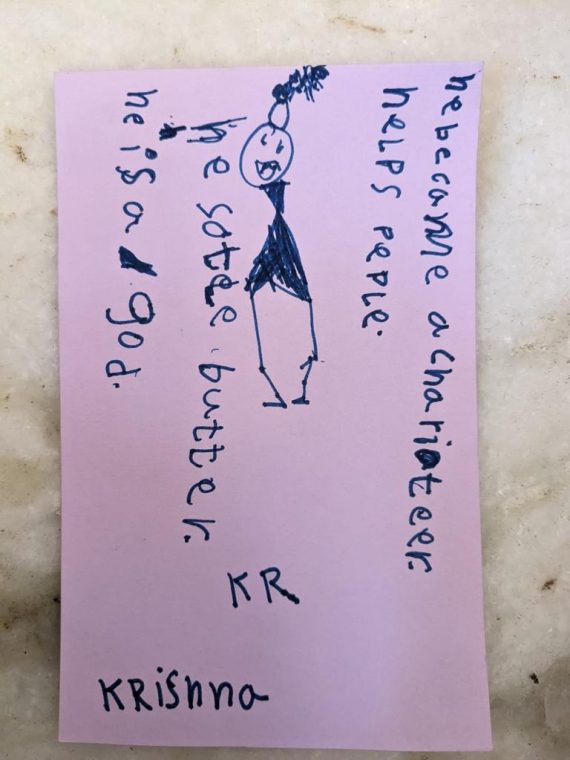 he became a charioteer.
helps peple.
he sotele butter.
he is a god.
KR
KRishna